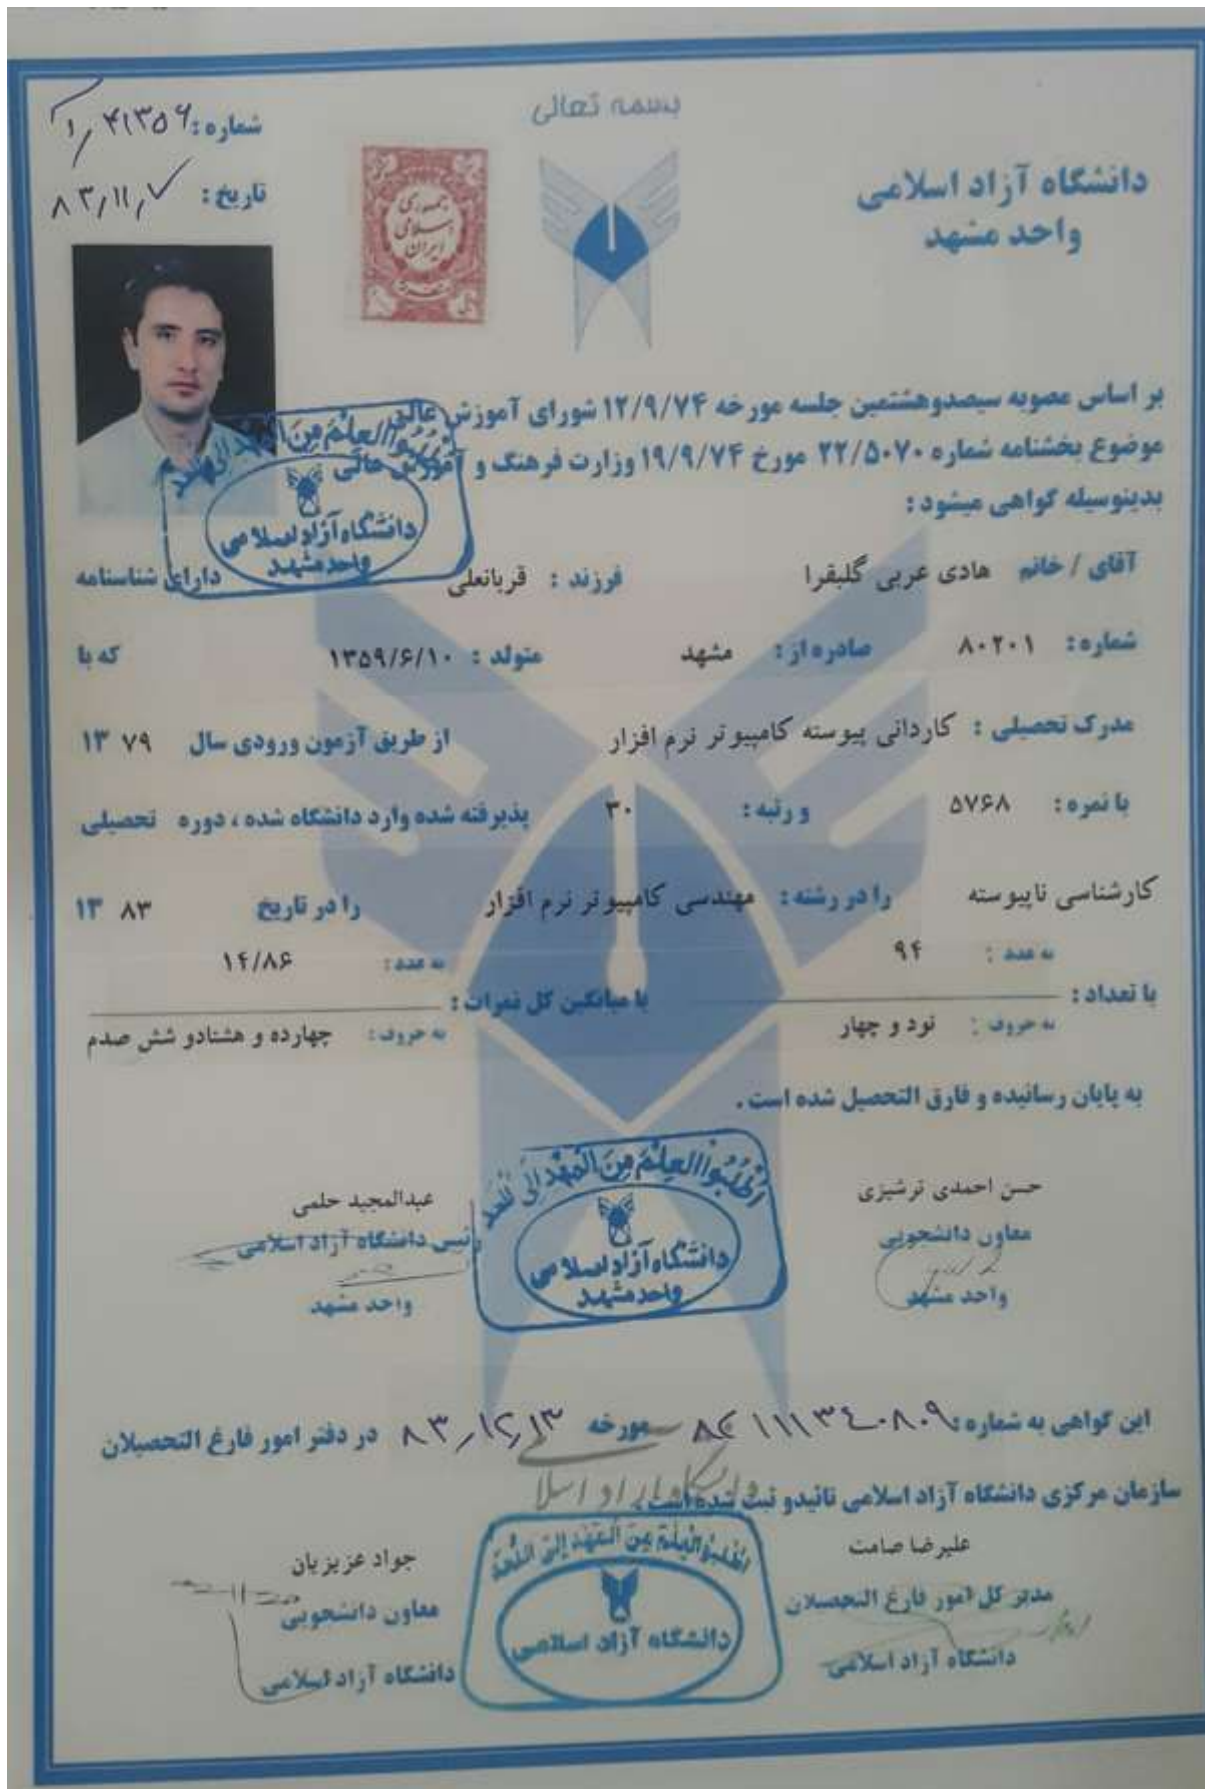 بسمه تعالی
دانشگاه آزاد اسلامی
واحد مشهد
شماره: ۴۱۳۵۶
تاریخ: ۸۳/۱۱/۷
جمهوری
اسلامی
ایران
بر اساس مصوبه سیصدوهشتمین جلسه مورخه ۱۲/۹/۷۴ شورای آموزش عالی
موضوع بخشنامه شماره ۲۲/۵۰۷۰ مورخ ۱۹/۹/۷۴ وزارت فرهنگ و آموزش عالی
بدینوسیله گواهی میشود:
اطلبوا العلم من المهد الی
دانشگاه آزاد اسلامی
واحد مشهد
آقای / خانم هادی عربی گلبقرا فرزند: قربانعلی دارای شناسنامه
شماره: ۸۰۲۰۱ صادره از: مشهد متولد: ۱۳۵۹/۶/۱۰ که با
مدرک تحصیلی: کاردانی پیوسته کامپیوتر نرم افزار از طریق آزمون ورودی سال ۱۳۷۹
با نمره: ۵۷۶۸ و رتبه: ۳۰ پذیرفته شده وارد دانشگاه شده، دوره تحصیلی
کارشناسی ناپیوسته را در رشته: مهندسی کامپیوتر نرم افزار را در تاریخ ۱۳۸۳
به عدد: ۹۴ به عدد: ۱۴/۸۶
با تعداد: با میانگین کل نمرات:
به حروف: نود و چهار به حروف: چهارده و هشتادو شش صدم
به پایان رسانیده و فارق التحصیل شده است.
حسن احمدی ترشیزی
معاون دانشجویی
واحد مشهد
اطلبوا العلم من المهد الی اللحد
دانشگاه آزاد اسلامی
واحد مشهد
عبدالمجید حلمی
رئیس دانشگاه آزاد اسلامی
واحد مشهد
این گواهی به شماره: ۸۲۱۱۱۳۴۰۸۰۹ مورخه ۸۳/۱۲/۱۳ در دفتر امور فارغ التحصیلان
سازمان مرکزی دانشگاه آزاد اسلامی تائیدو ثبت شده است.
علیرضا صامت
مدیر کل امور فارغ التحصیلان
دانشگاه آزاد اسلامی
اطلبوا العلم من المهد الی اللحد
دانشگاه آزاد اسلامی
جواد عزیزیان
معاون دانشجویی
دانشگاه آزاد اسلامی